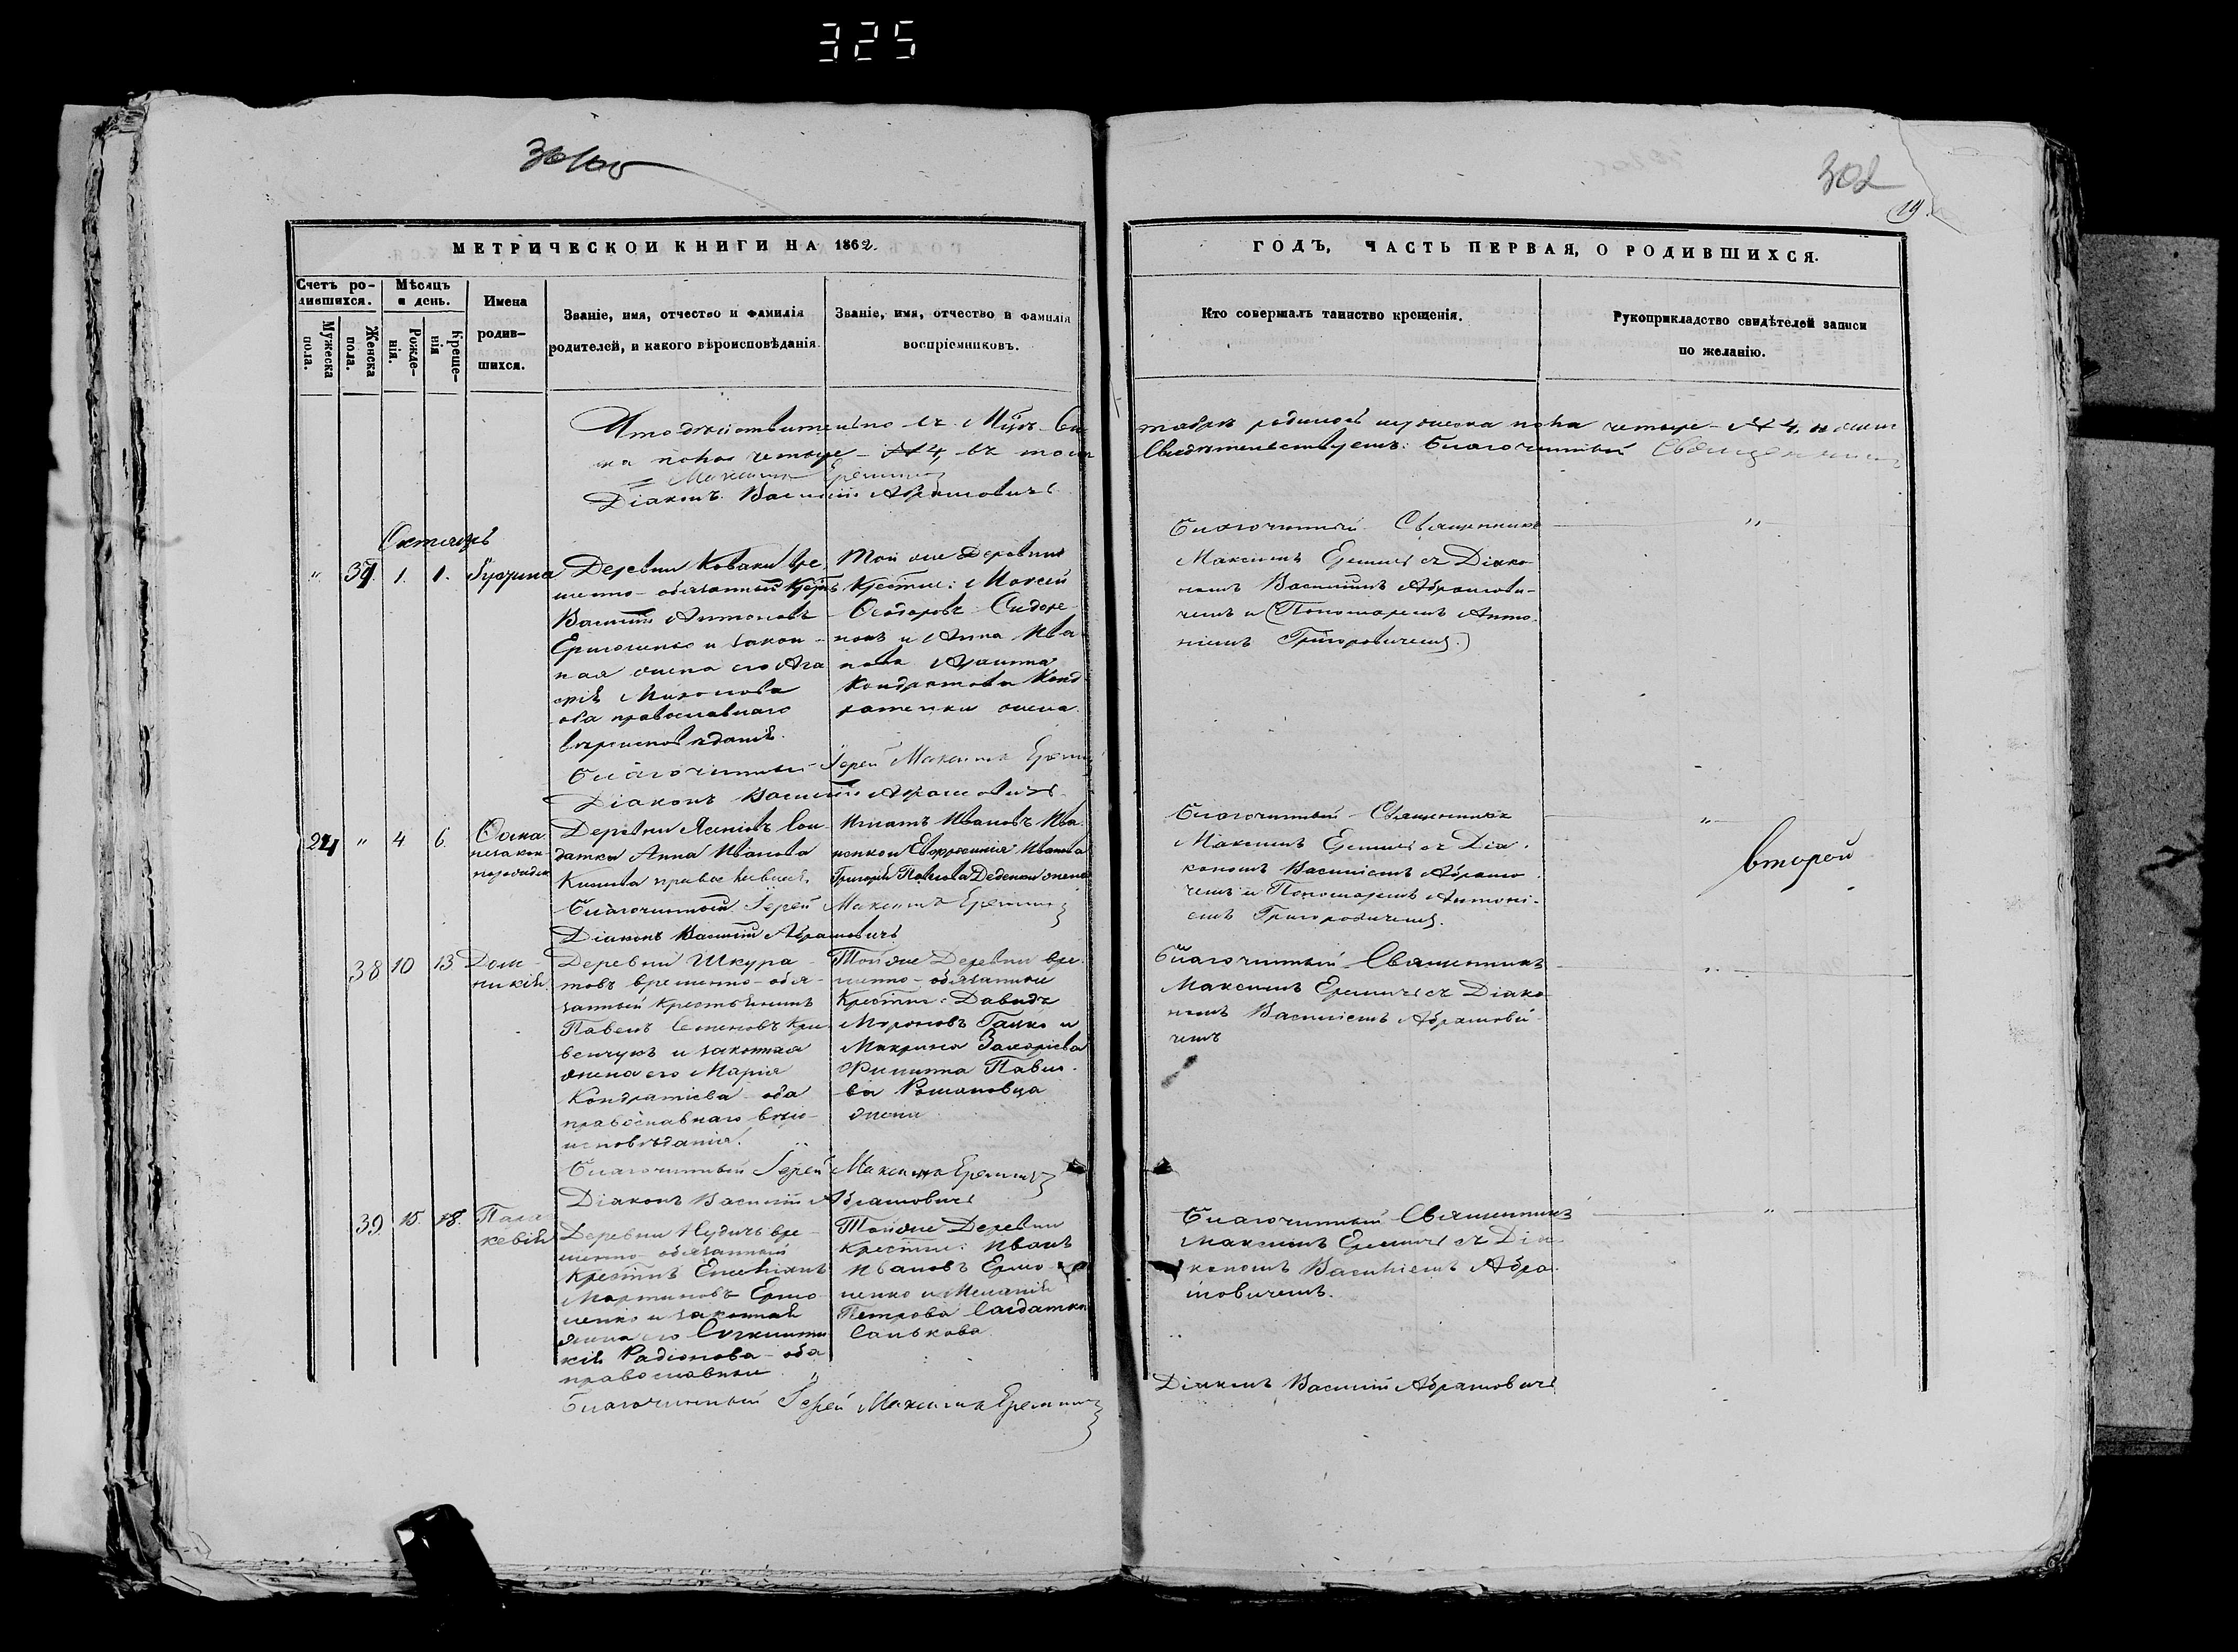 325
302
19.
МЕТРИЧЕСКОЙ КНИГИ НА 1862.
ГОДЪ, ЧАСТЬ ПЕРВАЯ, О РОДИВШИХСЯ.
Счетъ ро-
дившихся.
Мѣсяцъ
и день.
Мужеска
пола.
Женска
пола.
Рожде-
нія.
Креще-
нія
Имена
родив-
шихся.
Званіе, имя, отчество и фамилія
родителей, и какого вѣроисповѣданія.
Званіе, имя, отчество и фамилія
воспріемниковъ.
Кто совершалъ таинство крещенія.
Рукоприкладство свидѣтелей записи
по желанію.
Что дѣйствительно въ
таврѣ родилось мужеска пола четыре - №4,
ка пола четыре - №4, въ томъ
Свидѣтельствуетъ: Благочинный Священникъ
Максимъ Еремичъ
Діаконъ Василій Абрамовичъ
Октябрь
" 37. 1. 1.
Деревни Коваки вре
менно-обязанный Крест.
Василій Антоновъ
Ермоленко и закон-
ная жена его Ага
фія Миронова
оба православнаго
вѣроисповѣданія.
Той же Деревни
Крестне: Моисей
Ѳеодоровъ Сидоре-
нокъ и Анна Ива
нова
Кондратова Конд
ратенки жена.
Благочинный Священникъ
Максимъ Еремичъ съ Діако
номъ Василіемъ Абрамови-
чемъ и (Пономаремъ Анто
ніемъ Григоровичемъ.)
"
Благочинный Іерей Максимъ Еремичъ
Діаконъ Василій Абрамовичъ
24 " 4 6.
Ѳома
незакон
норожден
Деревни Ясенівъ Сол
датка Анна Иванова
Игнатъ Ивановъ Ива
ненко и Евфросинія Иванова
Григорія Павлова Деденки жена
Благочинный Священникъ
Максимъ Еремичъ съ Діа-
кономъ Василіемъ Абрамо
чемъ и Пономаремъ Антоні-
емъ Григоровичемъ.
"
второй
Благочинный Іерей Максимъ Еремичъ
Діаконъ Василій Абрамовичъ
38 10 13
Дом-
никія
Деревни Шкура-
товъ временно-обя-
занный крестьянинъ
Павелъ Семеновъ Кри
венчукъ и законная
жена его Марія
Кондратіева - оба
православнаго вѣро-
исповѣданія.
Той же Деревни вре-
менно-обязанные
Крестне: Давидъ
Мироновъ Галко и
Макрина Захаріева
Филиппа Павло-
ва Романовца
жена
Благочинный Священникъ
Максимъ Еремичъ съ Діако
номъ Василіемъ Абрамови-
чемъ
"
Благочинный Іерей Максимъ Еремичъ
Діаконъ Василій Абрамовичъ
39 15. 18.
Пара
кевія
Деревни Нудичъ вре-
менно-обязанный
Крестнъ Емельянъ
Мартиновъ Ермо
ленко и законная
жена его
кія Радіонова - оба
православные
Той же Деревни
Крестне: Иванъ
Ивановъ Ермо
ленко и Меланія
Петрова Солдатка
Санькова
Благочинный Священникъ
Максимъ Еремичъ съ Діа
кономъ Василіемъ Абра-
мовичемъ.
"
Благочинный Іерей Максимъ Еремичъ
Діаконъ Василій Абрамовичъ